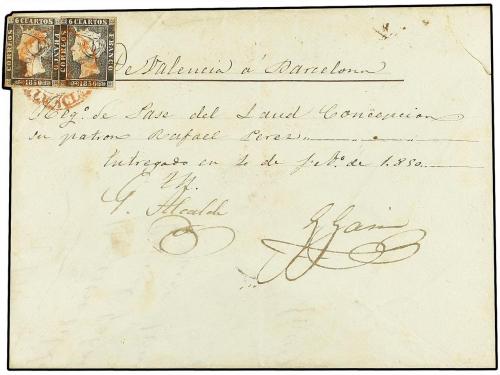 6 CUARTOS 6 CUARTOS
CORREOS FRANCO CORREOS FRANCO
1850 1850
De Valencia á Barcelona
Reg.º de Pase del Laud Concepcion
su patron Rafael Perez
Entregado en 20 de de 1.850.
Alcalde